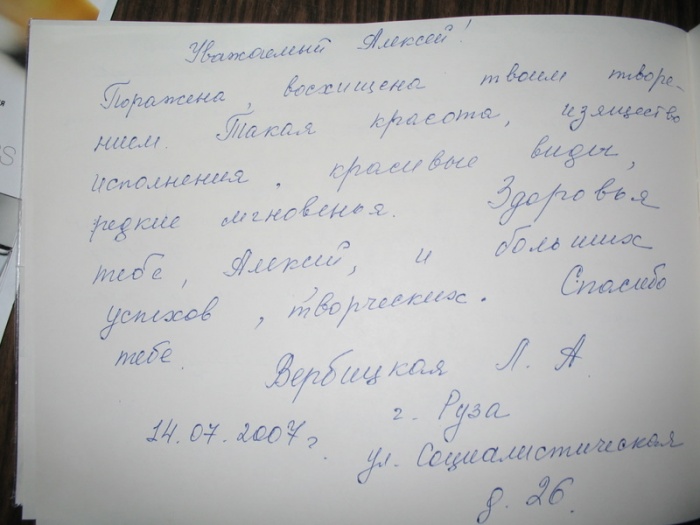 Уважаемый Алексей!
Поражена, восхищена твоим творе-
нием. Такая красота, изящество
исполнения, красивые виды,
редкие мгновенья. Здоровья
тебе, Алексей, и больших
успехов, творческих. Спасибо
тебе.
Вербицкая Л. А.
г. Руза
14.07.2007 г.
ул. Социалистическая
д. 26.